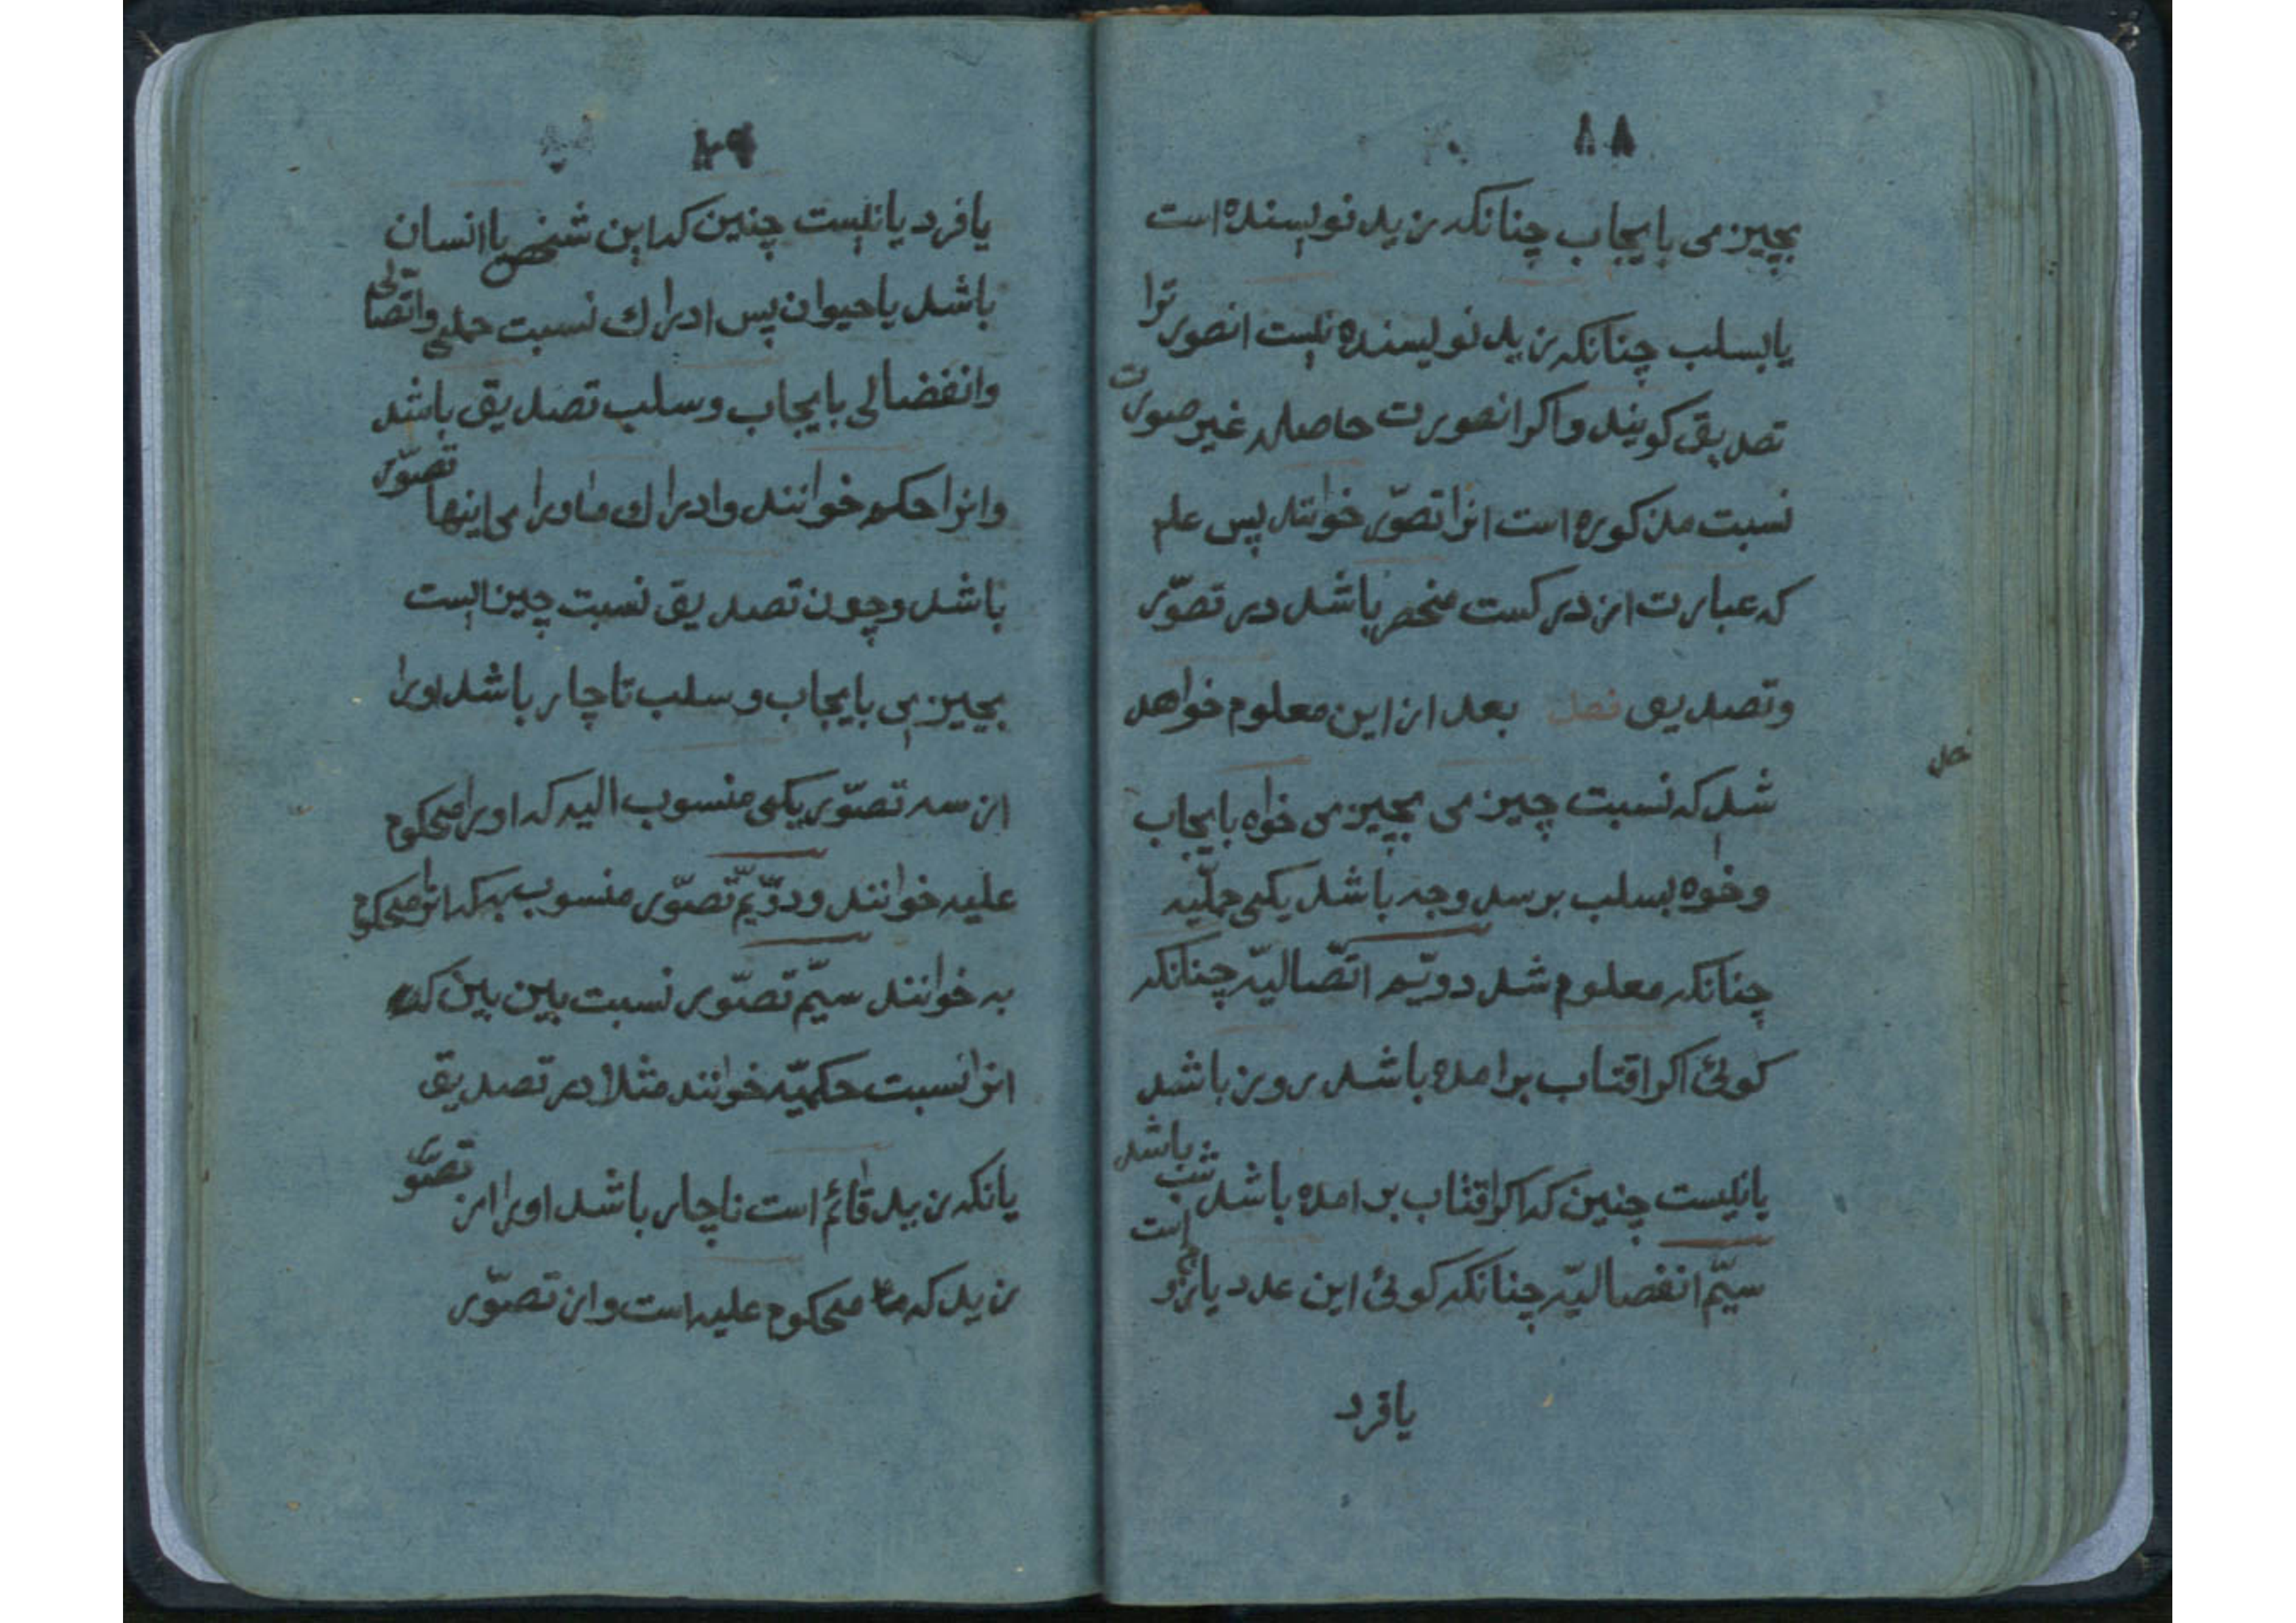 ۸۸
بچیزی بایجاب چنانکه زید نویسنده است
یا بسلب چنانکه زید نویسنده نیست انصورترا
تصدیق کویند واکر انصورت حاصله غیر صورت
نسبت مذکوره است انرا تصوّر خوانند پس علم
که عبارت از درکست منحصر باشد در تصوّر
وتصدیق فصل بعد از این معلوم خواهد
فصل
شد که نسبت چیزی بچیزی خواه بایجاب
وخواه بسلب بر سه وجه باشد یکی حملیّه
چنانکه معلوم شد دویّم اتّصالیّه چنانکه
کوئی اکر افتاب برامده باشد روز باشد
یا نیست چنین که اکر افتاب بر امده باشد شب باشد
سیّم انفصالیّه چنانکه کوئی این عدد یا زوج است
یا فرد
۸۹
یا فرد یا نیست چنین که این شخص یا انسان
باشد یا حیوان پس ادراك نسبت حملی واتّصالی
وانفضالی بایجاب وسلب تصدیق باشد
وانرا حکم خوانند وادراك ماورای اینها تصوّر
باشد وچون تصدیق نسبت چیزیست
بچیزی بایجاب وسلب ناچار باشد اورا
از سه تصوّر یکی منسوب الیه که اورا محکوم
علیه خوانند ودوّیّم تصوّر منسوب به که انرا محکوم
به خوانند سیّم تصوّر نسبت بین بین که
انرا نسبت حکمیّه خوانند مثلا در تصدیق
یانکه زید قائم است ناچار باشد اورا از تصوّر
زید که محکوم علیه است واز تصوّر